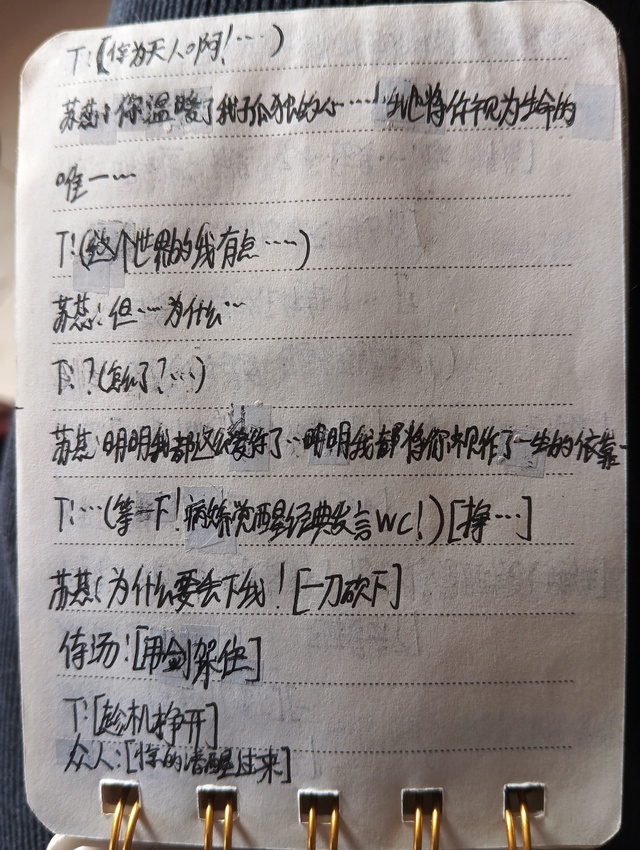 T:(惊为天人啊!……)
苏慈:你温暖了我孤独的心……我也将你视为生命的
唯一…
T:(这个世界的我有点……)
苏慈:但……为什么…
T:?(怎么了?…)
苏慈:明明我都这么爱你了…明明我都将你视作了一生的依靠…
T:…(等一下!病娇觉醒经典发言WC!)[挣…]
苏慈:为什么要丢下我![一刀砍下]
侍场:[用剑架住]
T:[趁机挣开]
众人:[惊的清醒过来]